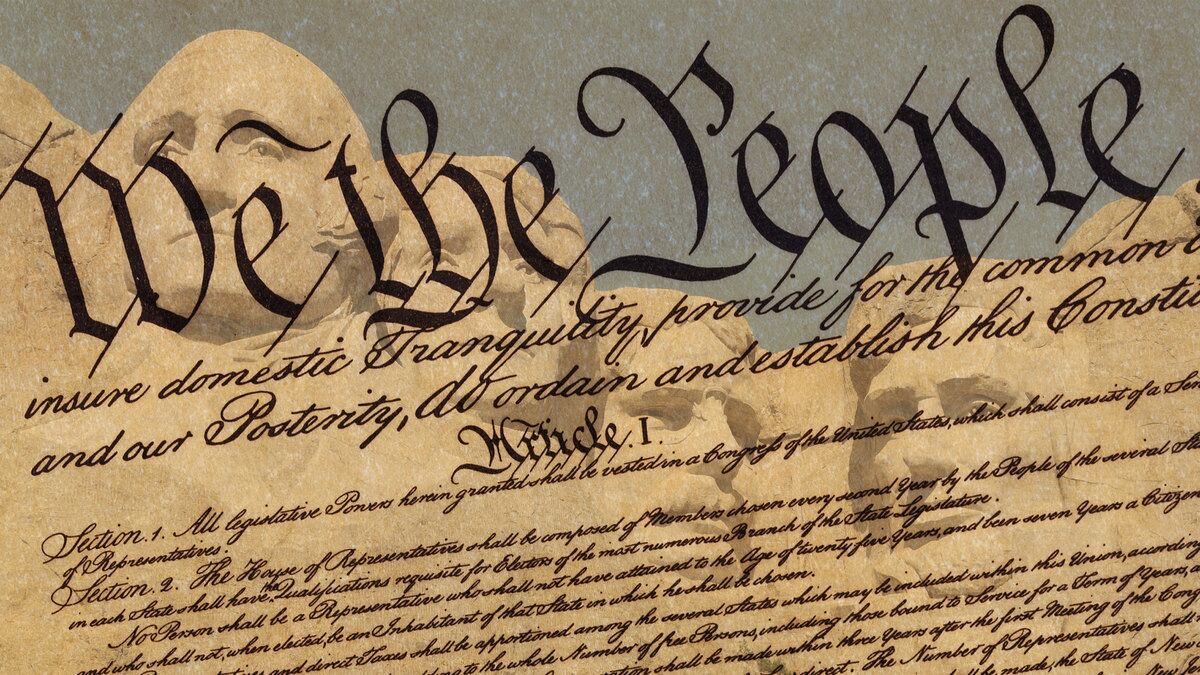 We the People
insure domestic Tranquility, provide for the common
and our Posterity, do ordain and establish this Constitu
Article. I.
Section. 1. All legislative Powers herein granted shall be vested in a Congress of the United States, which shall consist of a Sen
of Representatives.
Section. 2. The House of Representatives shall be composed of Members chosen every second Year by the People of the several Sta
in each State shall have the Qualifications requisite for Electors of the most numerous Branch of the State Legislature.
No Person shall be a Representative who shall not have attained to the Age of twenty five Years, and been seven Years a Citizen
and who shall not, when elected, be an Inhabitant of that State in which he shall be chosen.
and direct Taxes shall be apportioned among the several States which may be included within this Union, according
to the whole Number of free Persons, including those bound to Service for a Term of Years, a
shall be made within three Years after the first Meeting of the Cong
direct. The Number of Representatives shall
shall be made, the State of New